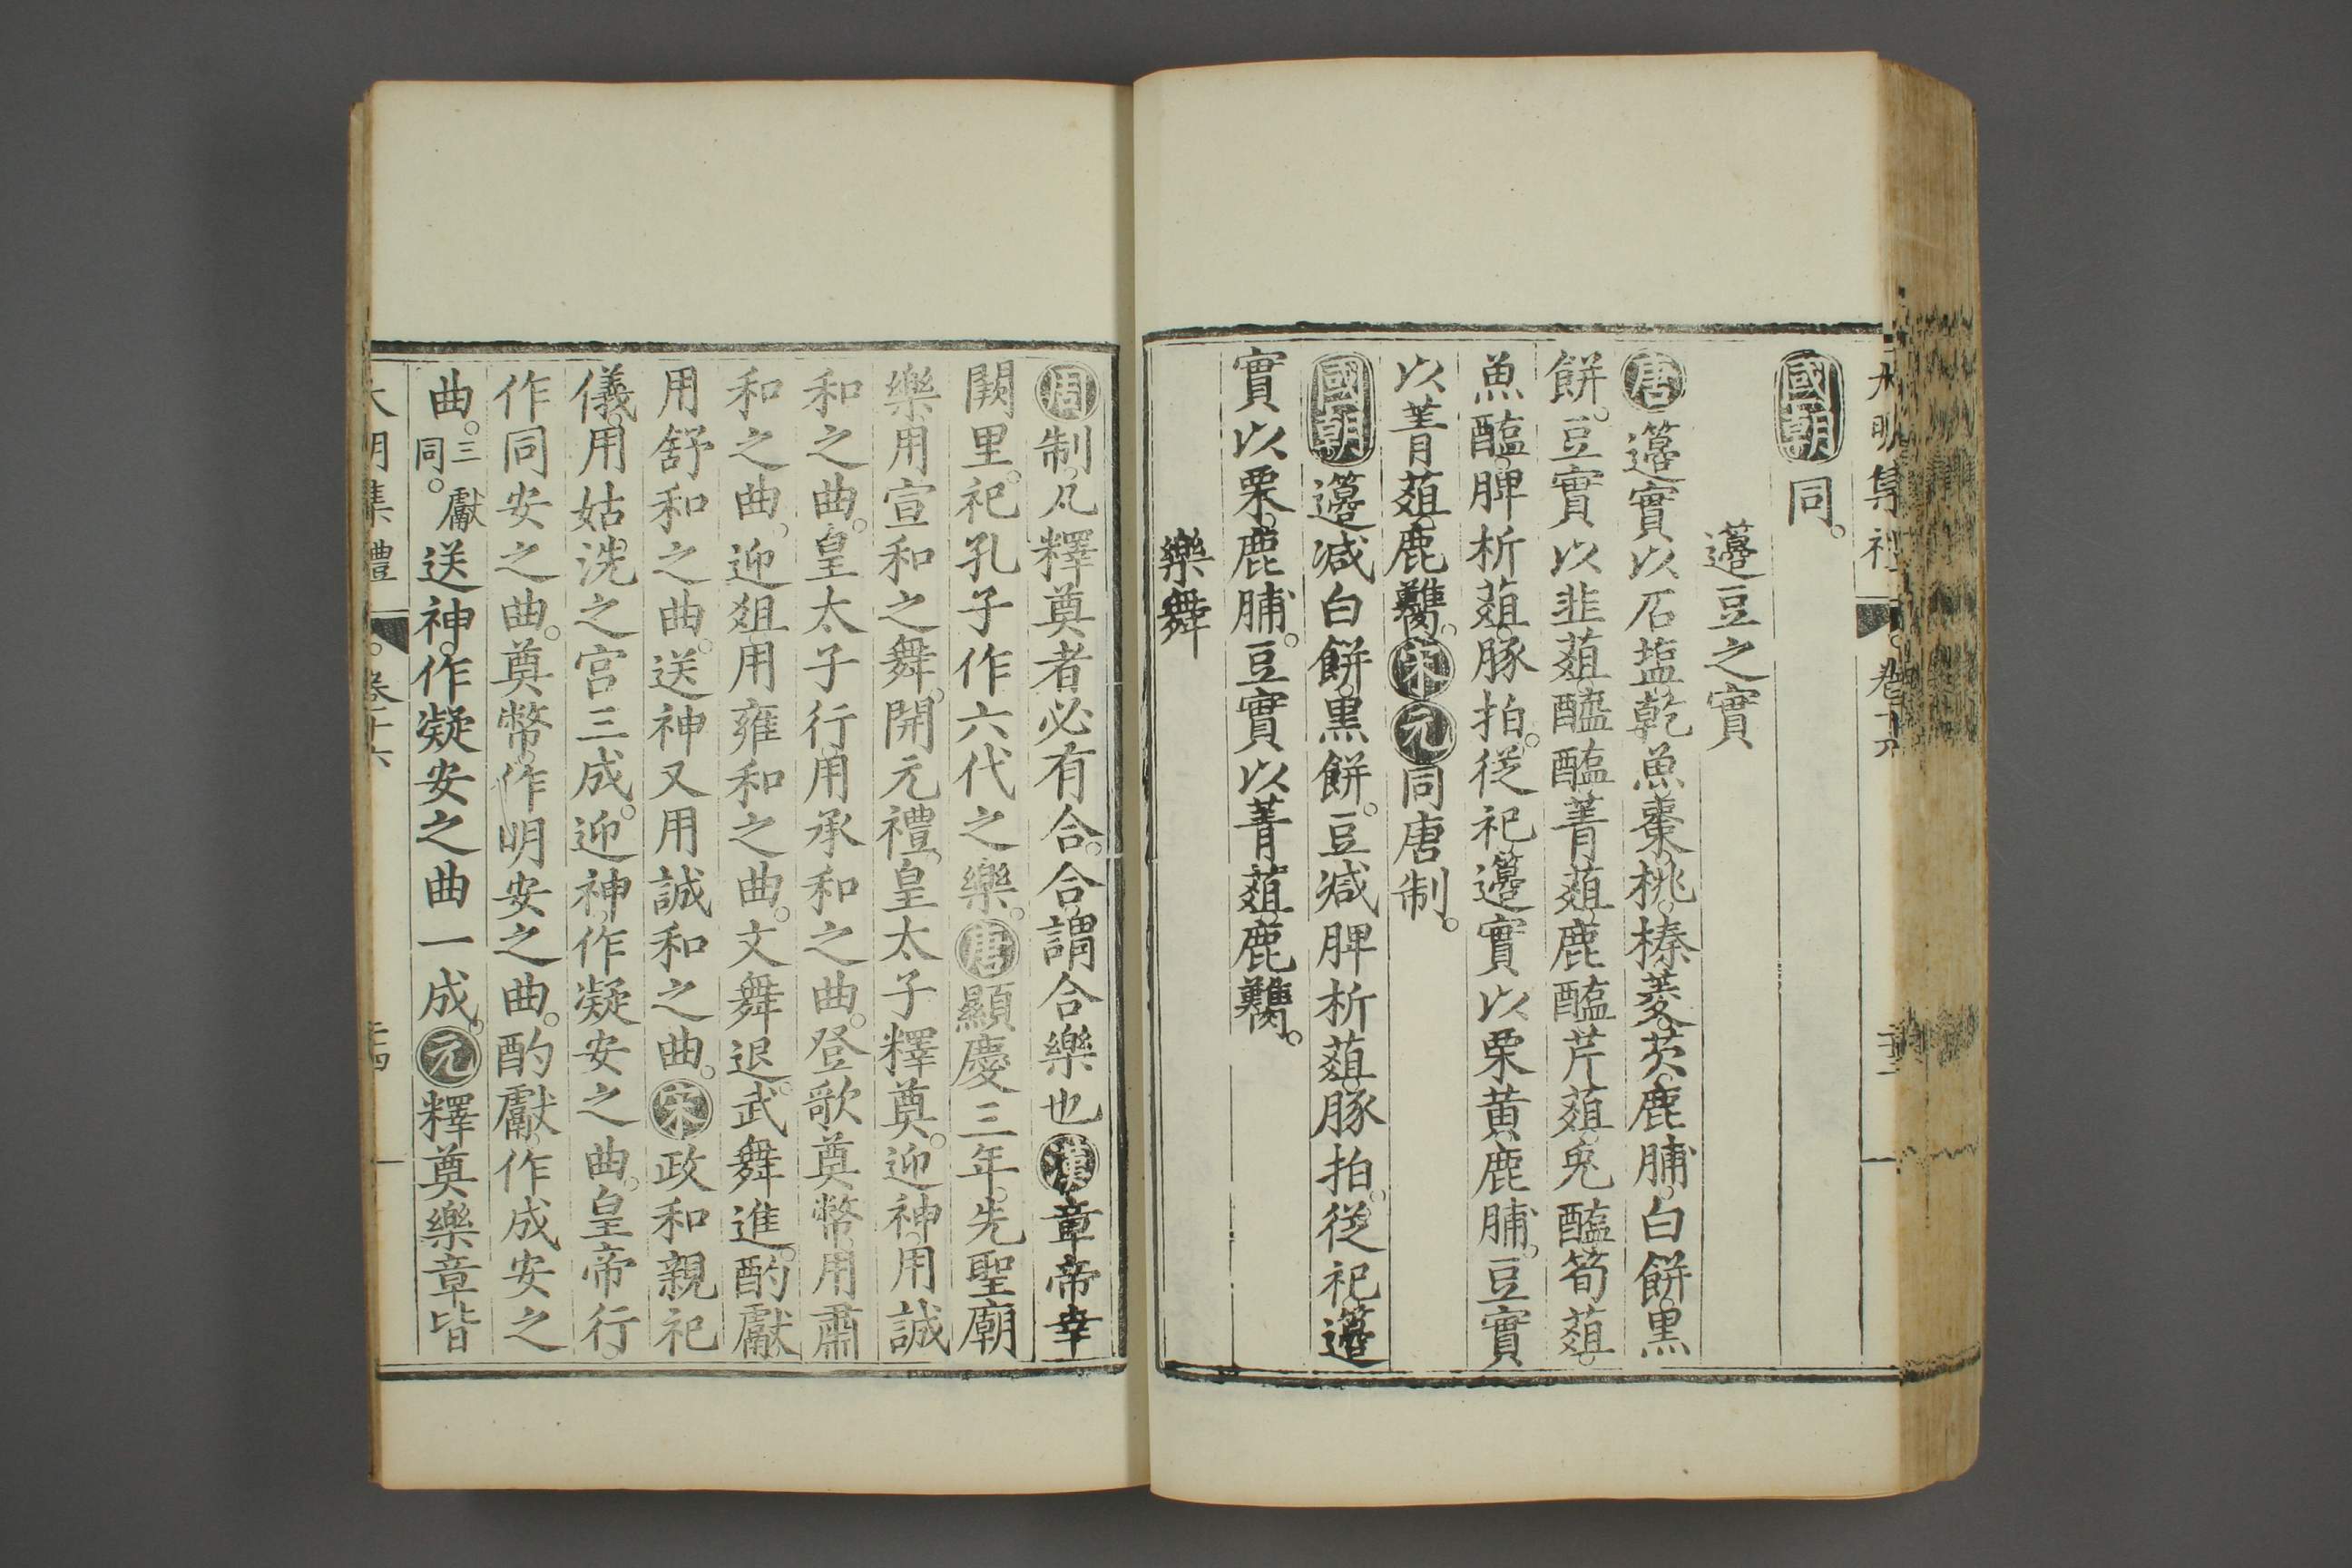 國朝同。
籩豆之實
唐籩實以石塩乾魚棗桃榛菱芡鹿脯白餅黒
餅。豆實以韭葅醓醢菁葅鹿醢芹葅兎醢筍葅。
魚醢脾析葅豚拍。從祀籩實以栗黄鹿脯。豆實
以菁葅鹿臡。宋元同唐制。
國朝籩減白餅黒餅。豆減脾析葅豚拍。從祀籩
實以栗鹿脯。豆實以菁葅鹿臡。
樂舞
周制凡釋奠者必有合。合謂合樂也漢章帝幸
闕里。祀孔子作六代之樂。唐顯慶三年。先聖廟
樂用宣和之舞。開元禮。皇太子釋奠。迎神。用誠
和之曲。皇太子行用承和之曲。登歌奠幣。用肅
和之曲。迎俎用雍和之曲。文舞退。武舞進。酌獻
用舒和之曲。送神又用誠和之曲。宋政和親祀
儀。用姑洗之宫三成。迎神。作凝安之曲。皇帝行。
作同安之曲。奠幣。作明安之曲。酌獻。作成安之
曲。三獻同。送神。作凝安之曲一成。元釋奠樂章皆
大明集禮 卷十六